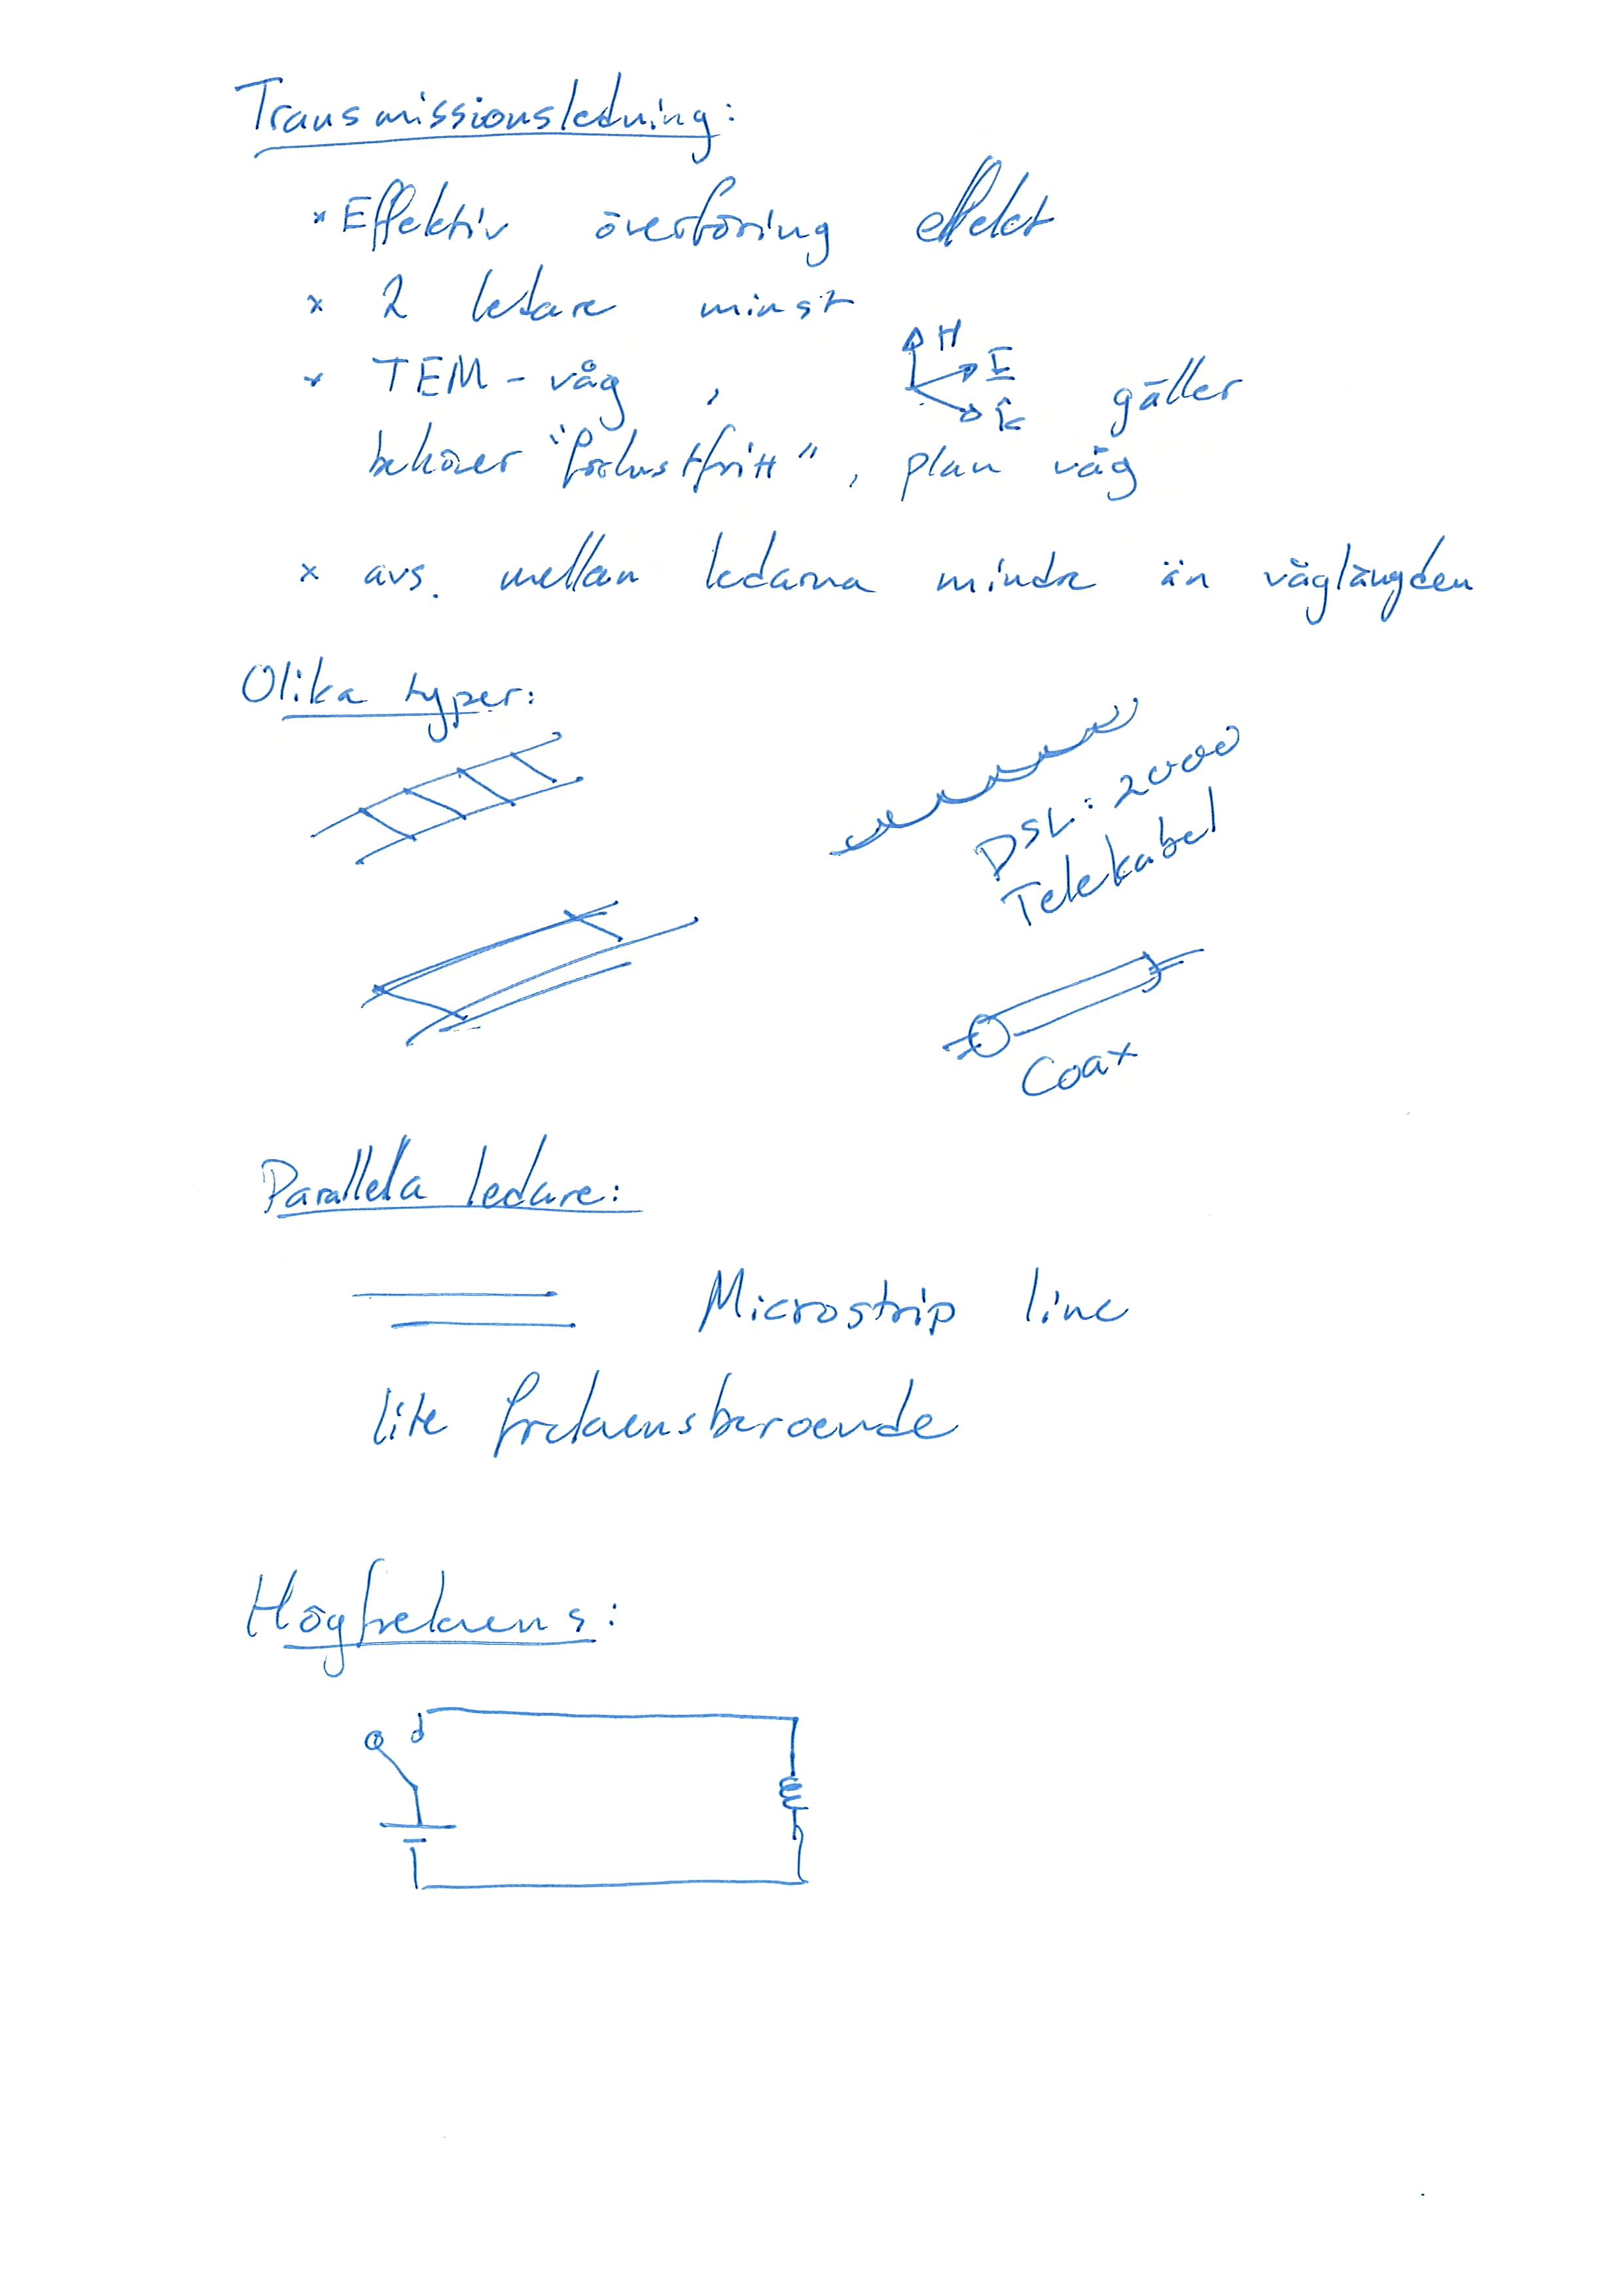 Transmissionsledning:
× Effektiv överföring effekt
× 2 ledare minst
× TEM-våg , H E k̂ gäller
behöver "förlustfritt" , plan våg
× avs. mellan ledarna mindre än våglängden
Olika typer:
DSL: 2000
Telekabel
Coax
Parallella ledare:
Microstrip line
lite frekvensberoende
Högfrekvens: